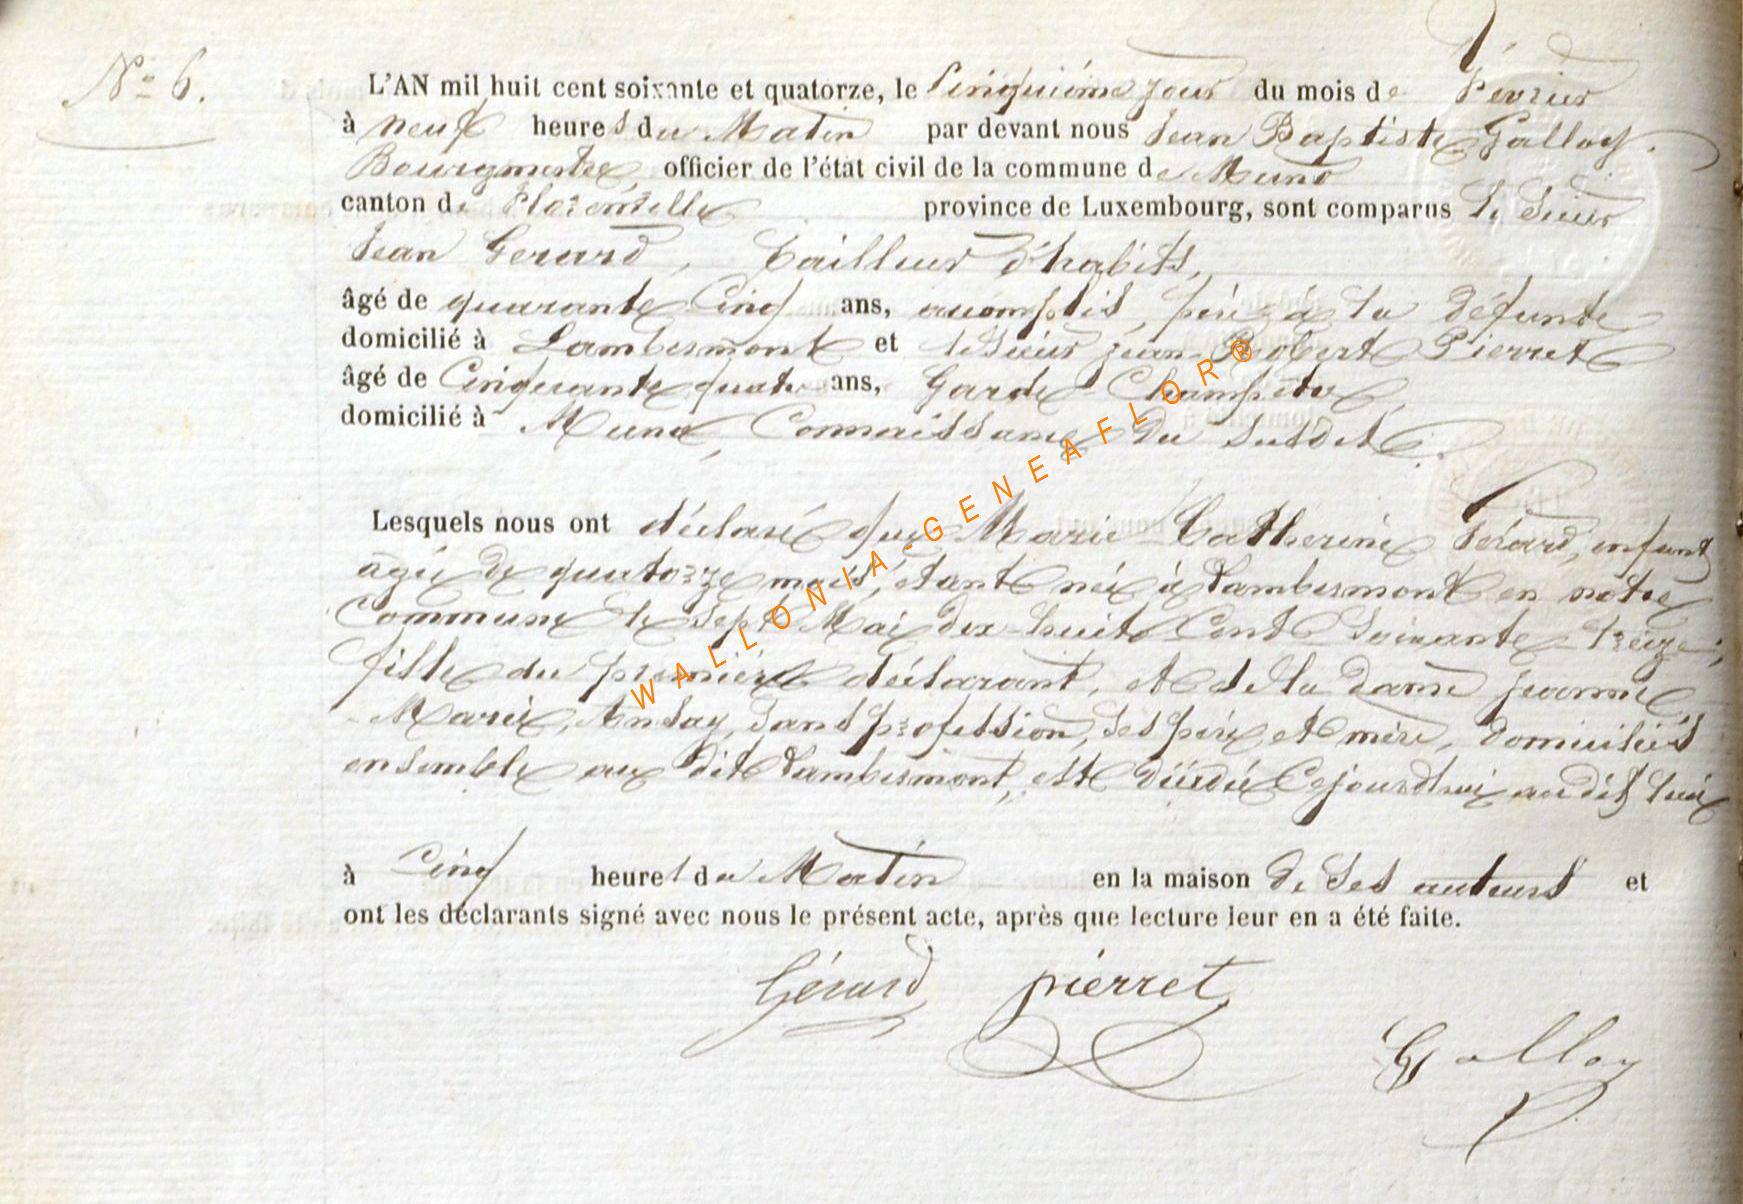 No 6.
L'AN mil huit cent soixante et quatorze, le Cinquième jour du mois de Février
à neuf heures du Matin par devant nous Jean Baptiste Galloy.
Bourgmestre, officier de l'état civil de la commune de Muno
canton de Florenville province de Luxembourg, sont comparus le Sieur
Jean Gerard, Tailleur d'habits,
âgé de quarante Cinq ans, accomplis, père à la défunte
domicilié à Lambermont et le Sieur jean-Robert Pierret
âgé de Cinquante quatre ans, Garde Champêtre,
domicilié à Muno, Connaissance du susdit.
Lesquels nous ont déclaré que Marie Catherine Gérard, enfant
agée de quatorze mois, étant née à Lambermont en notre
Commune le sept Mai dix-huit Cent Soixante-treize;
fille du premier déclarant, et de la dame jeanne
Marie, Ansay, sans profession, ses père et mère, domiciliés
ensemble au dit Lambermont, est décédée Cejourdhui au dit lieu
à Cinq heures du Matin en la maison de ses auteurs et
ont les déclarants signé avec nous le présent acte, après que lecture leur en a été faite.
Gérard pierret
Galloy
WALLONIA-GENEAFLOR®